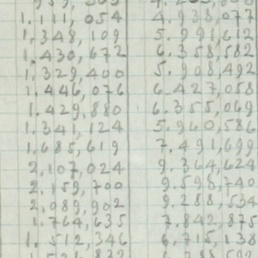 1.111,054 4.938,077
1.348,109 5.991,612
1.430,672 6.358,582
1.329,400 5.908,492
1.446,076 6.427,058
1.429,880 6.355,069
1.341,124 5.960,586
1.685,619 7.491,699
2,107,024 9.364,624
2.159,700 9.598,740
2.089,902 9.288,534
1.764,635 7.842,875
1.512,346 6.715,138